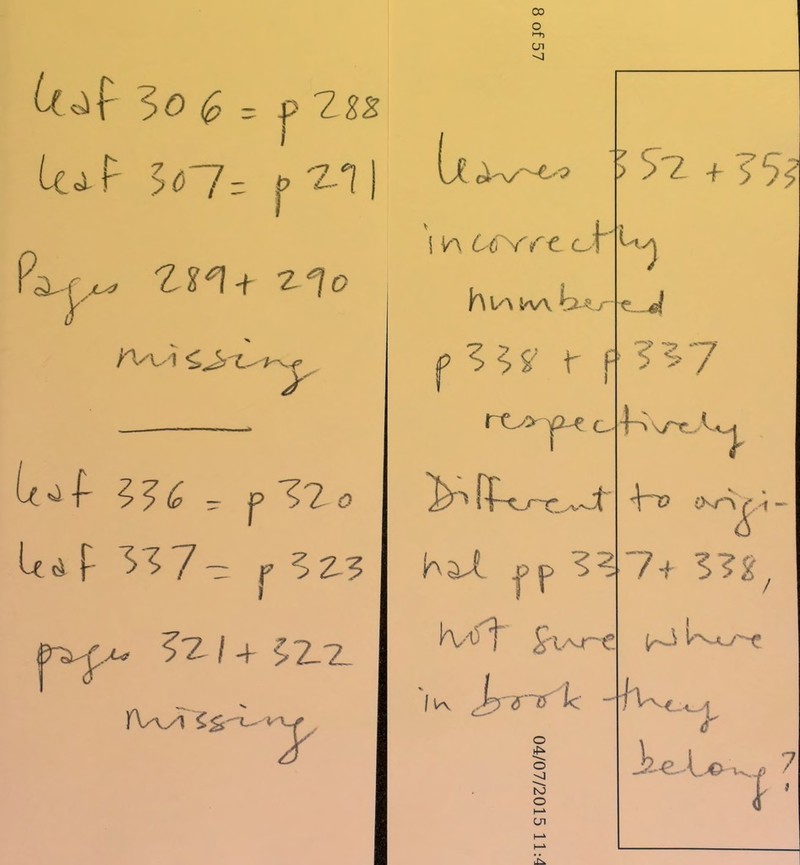 leaf 306 = p 288
leaf 307 = p 291
Pages 289 + 290
missing
leaf 336 = p 320
leaf 337 = p 323
pages 321 + 322
missing
8 of 57
leaves 352 + 353
incorrectly
numbered
p 338 + p 337
respectively
Different to origi-
nal pp 337 + 338,
not sure where
in book they
belong?
04/07/2015 11:4